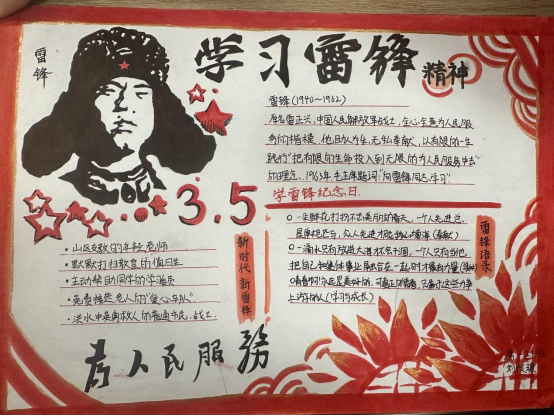 雷锋
学习雷锋精神
雷锋(1940~1962)
原名雷正兴,中国人民解放军战士,全心全意为人民服
务的楷模,他助人为乐,无私奉献,以有限的一生
践行"把有限的生命投入到无限的为人民服务中去"
的理念。1963年毛主席题词"向雷锋同志学习"
学雷锋纪念日.
3.5
·山区支教的年轻老师
·默默打扫教室的值日生
·主动帮助同学的学习委员
·免费接送老人的"爱心车队"
·洪水中英勇救人的普通市民、战士.
新时代新雷锋
一朵鲜花打扮不出美丽的春天,一个人先进总
是单枪匹马,众人先进才能移山填海
一滴水只有放进大海才不会干涸,一个人只有当他
把自己和集体事业融合在一起时才最有力量
青春啊,永远是美好的,可真正的青春,只属于这些力争
上游的人
雷锋语录
为人民服务